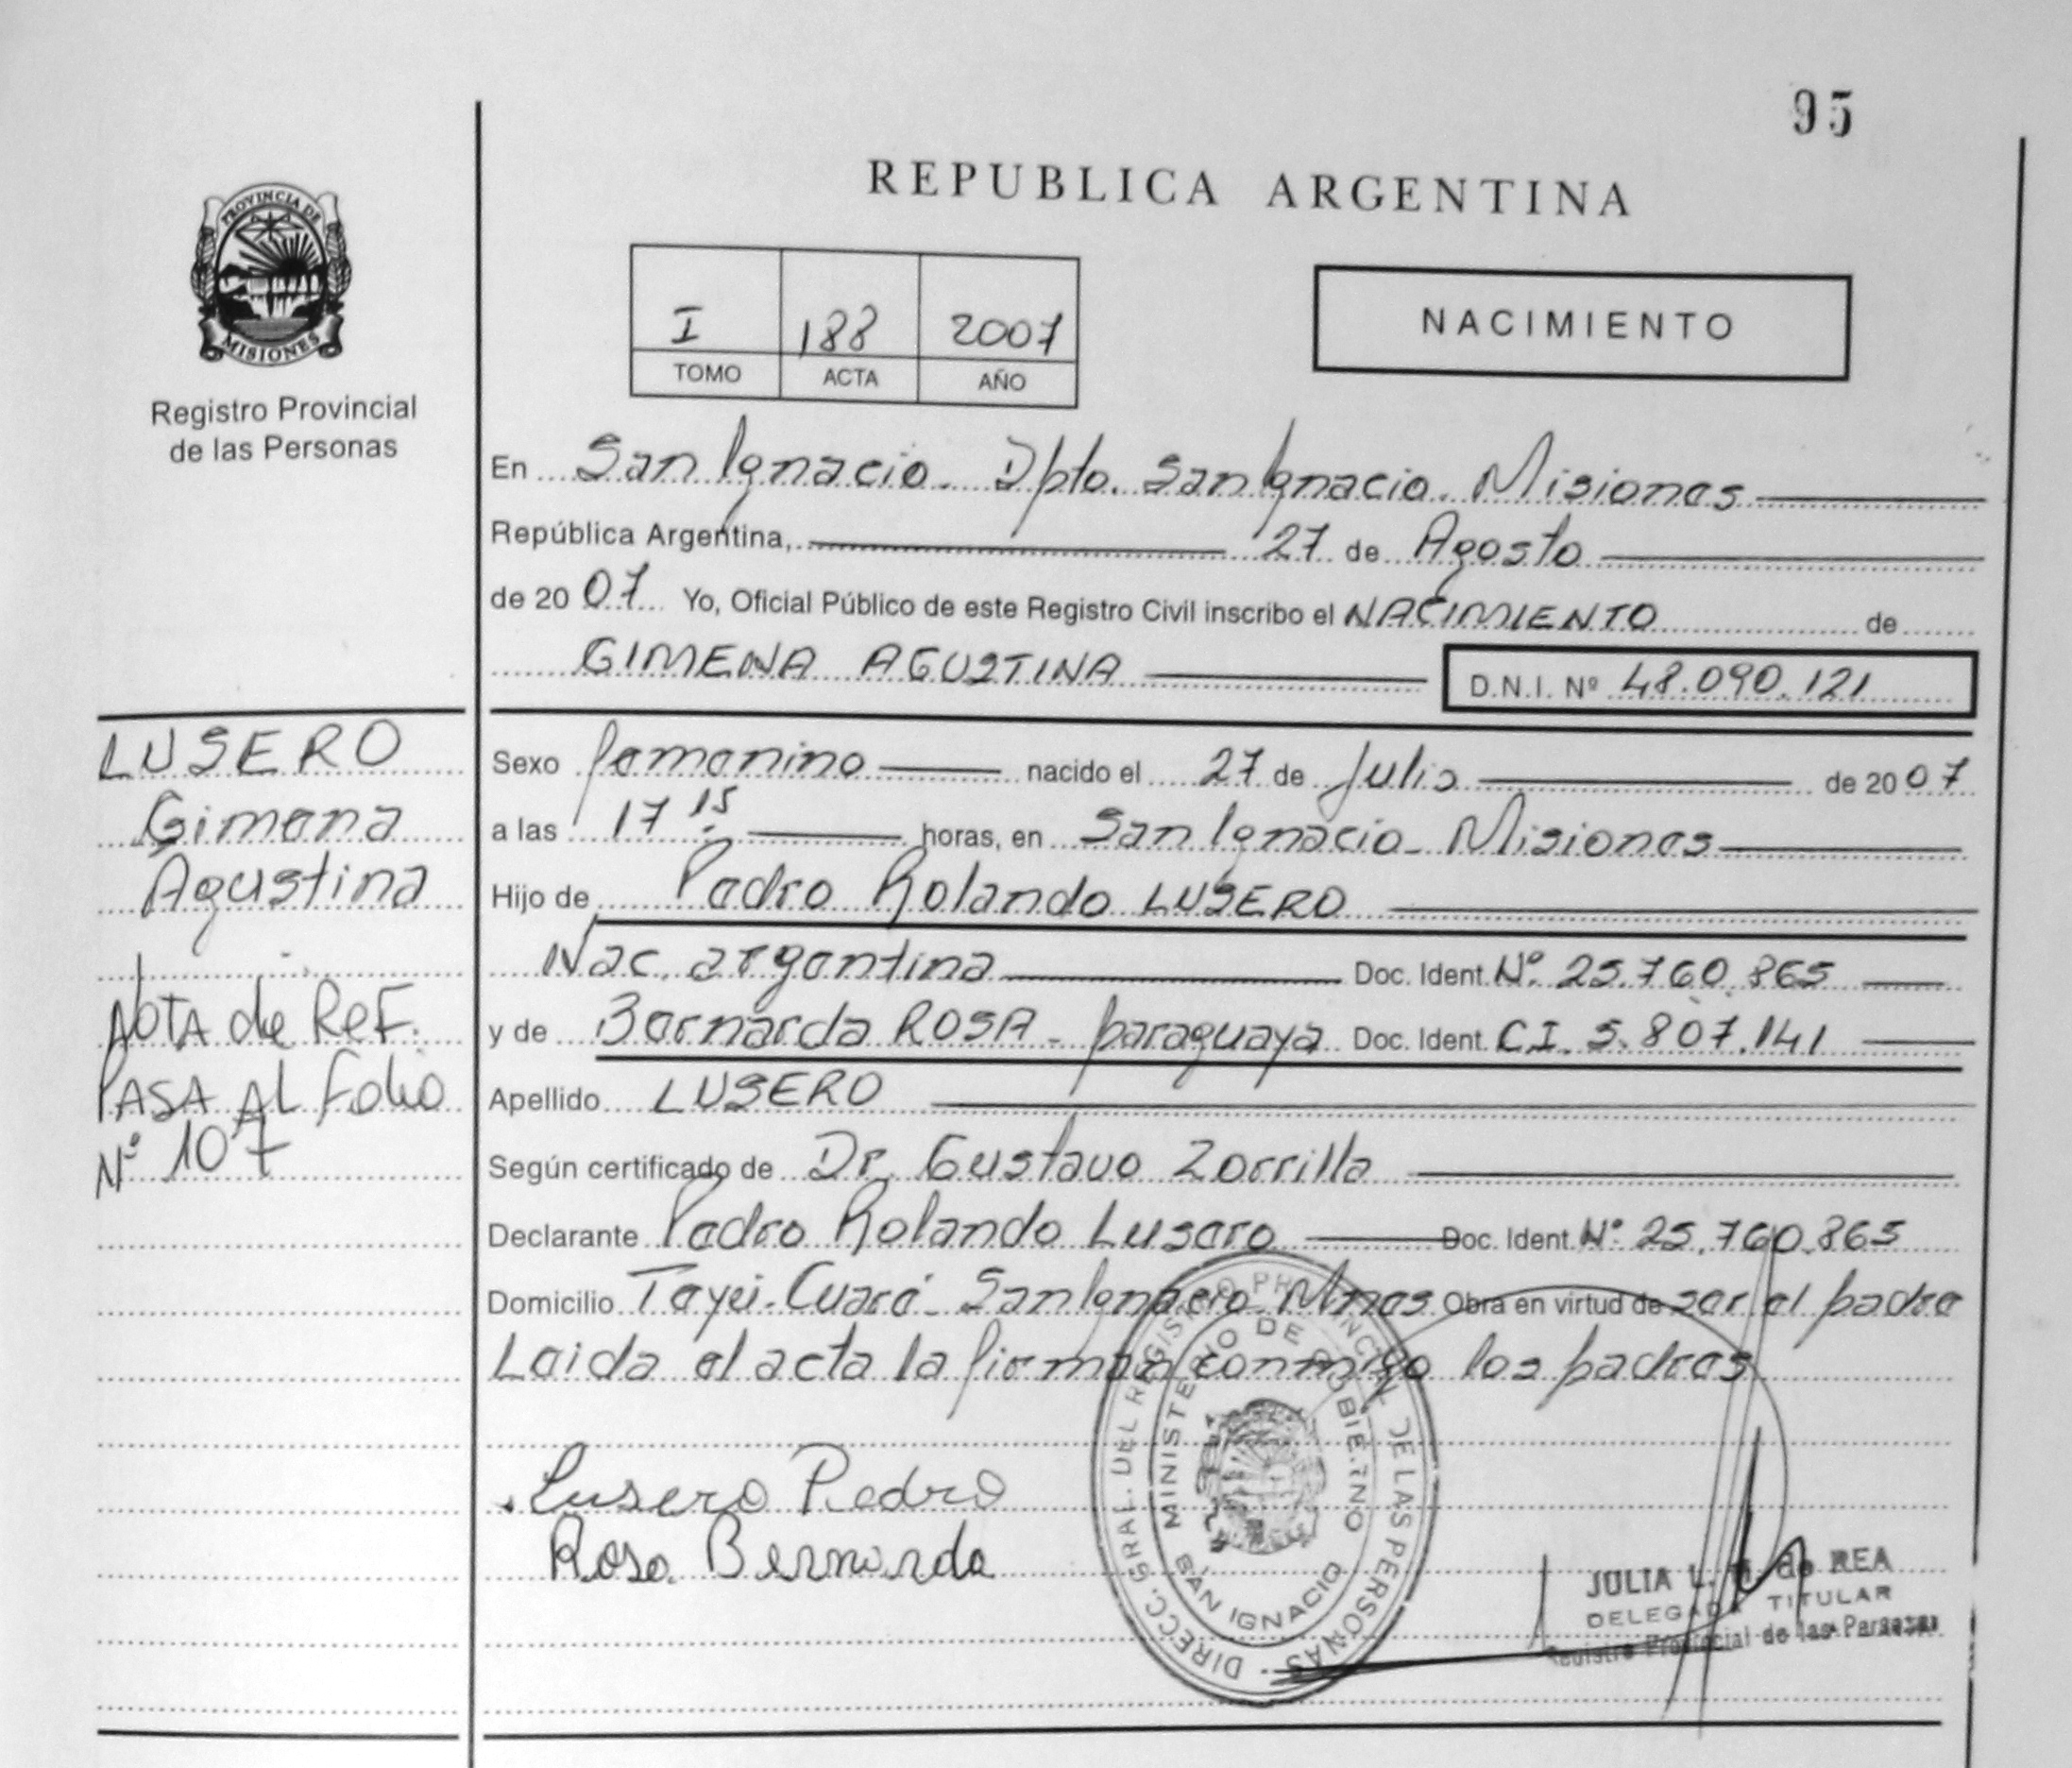 95
REPUBLICA ARGENTINA
PROVINCIA DE
MISIONES
Registro Provincial
de las Personas
I 188 2007
TOMO ACTA AÑO
NACIMIENTO
En San Ignacio. Dpto. San Ignacio. Misiones
República Argentina, 27 de Agosto
de 2007 Yo, Oficial Público de este Registro Civil inscribo el NACIMIENTO de
GIMENA AGUSTINA D.N.I. Nº 48.090.121
LUSERO
Gimena
Agustina
NOTA de REF.
PASA AL Folio
Nº 107
Sexo femenino nacido el 27 de Julio de 2007
a las 17 15 horas, en San Ignacio - Misiones
Hijo de Pedro Rolando LUSERO
Nac. argentina Doc. Ident. Nº 25.760.865
y de Bernarda ROSA - paraguaya Doc. Ident. CI. 5.807.141
Apellido LUSERO
Según certificado de Dr. Gustavo Zorrilla
Declarante Pedro Rolando Lusero Doc. Ident. Nº 25.760.865
Domicilio Cuaré - San Ignacio Mnes Obra en virtud de ser el padre
Leida el acta la firman conmigo los padres
Lusero Pedro
Rosa Bernarda
DIRECC. GRAL. DEL REGISTRO PROVINCIAL DE LAS PERSONAS
MINISTERIO DE GOBIERNO
SAN IGNACIO
JULIA L. de REA
DELEGADA TITULAR
Registro Provincial de las Personas